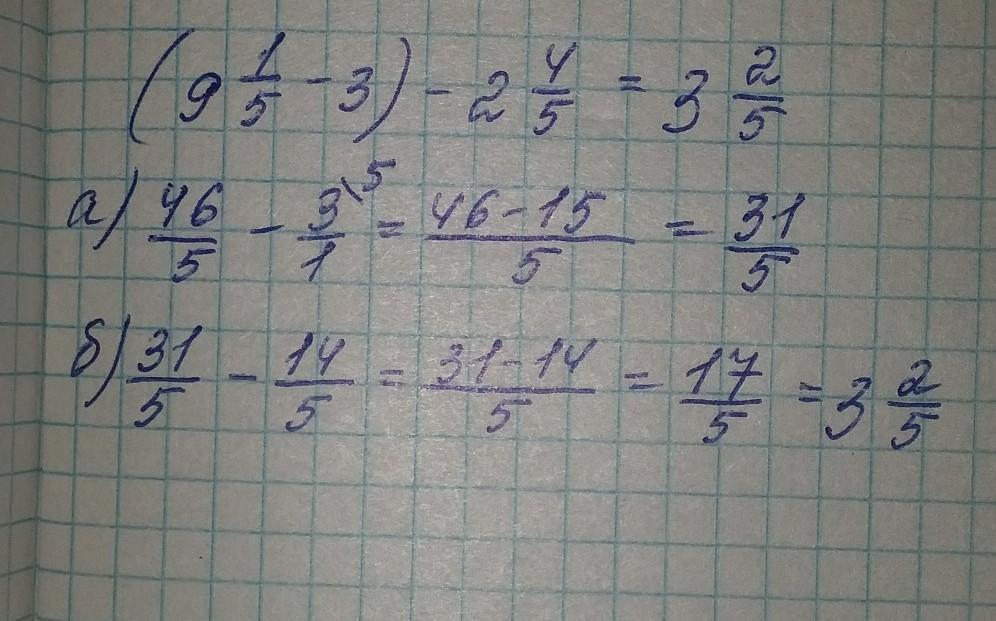 (9 1/5 - 3) - 2 4/5 = 3 2/5
а) 46/5 - 3\5/1 = 46-15/5 = 31/5
б) 31/5 - 14/5 = 31-14/5 = 17/5 = 3 2/5